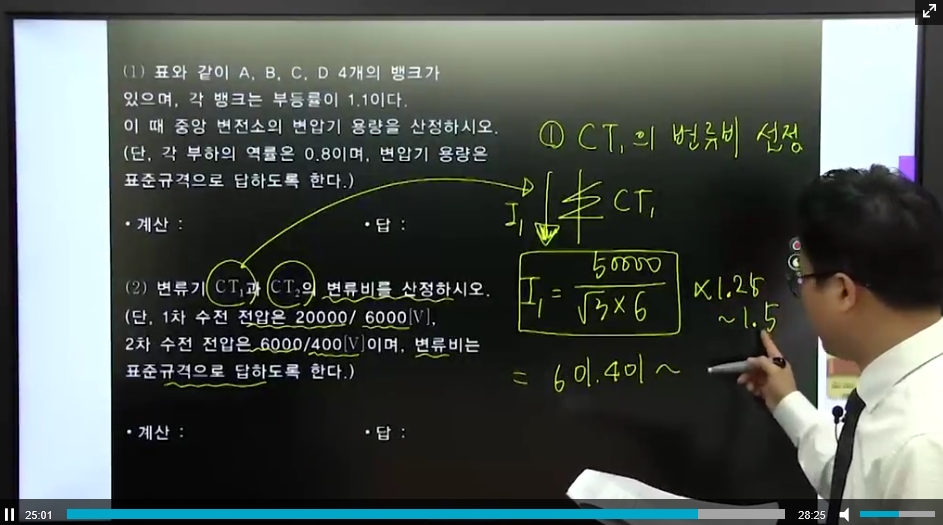 (1) 표와 같이 A, B, C, D 4개의 뱅크가
있으며, 각 뱅크는 부등률이 1.1이다.
이 때 중앙 변전소의 변압기 용량을 산정하시오.
(단, 각 부하의 역률은 0.8이며, 변압기 용량은
표준규격으로 답하도록 한다.)
• 계산 : • 답 :
(2) 변류기 CT₁과 CT₂의 변류비를 산정하시오.
(단, 1차 수전 전압은 20000/ 6000[V],
2차 수전 전압은 6000/400[V]이며, 변류비는
표준규격으로 답하도록 한다.)
• 계산 : • 답 :
① CT₁의 변류비 선정
I₁ CT₁
I₁ = 50000 / √3×6 ×1.25
~1.5
= 601.401 ~
25:01 28:25